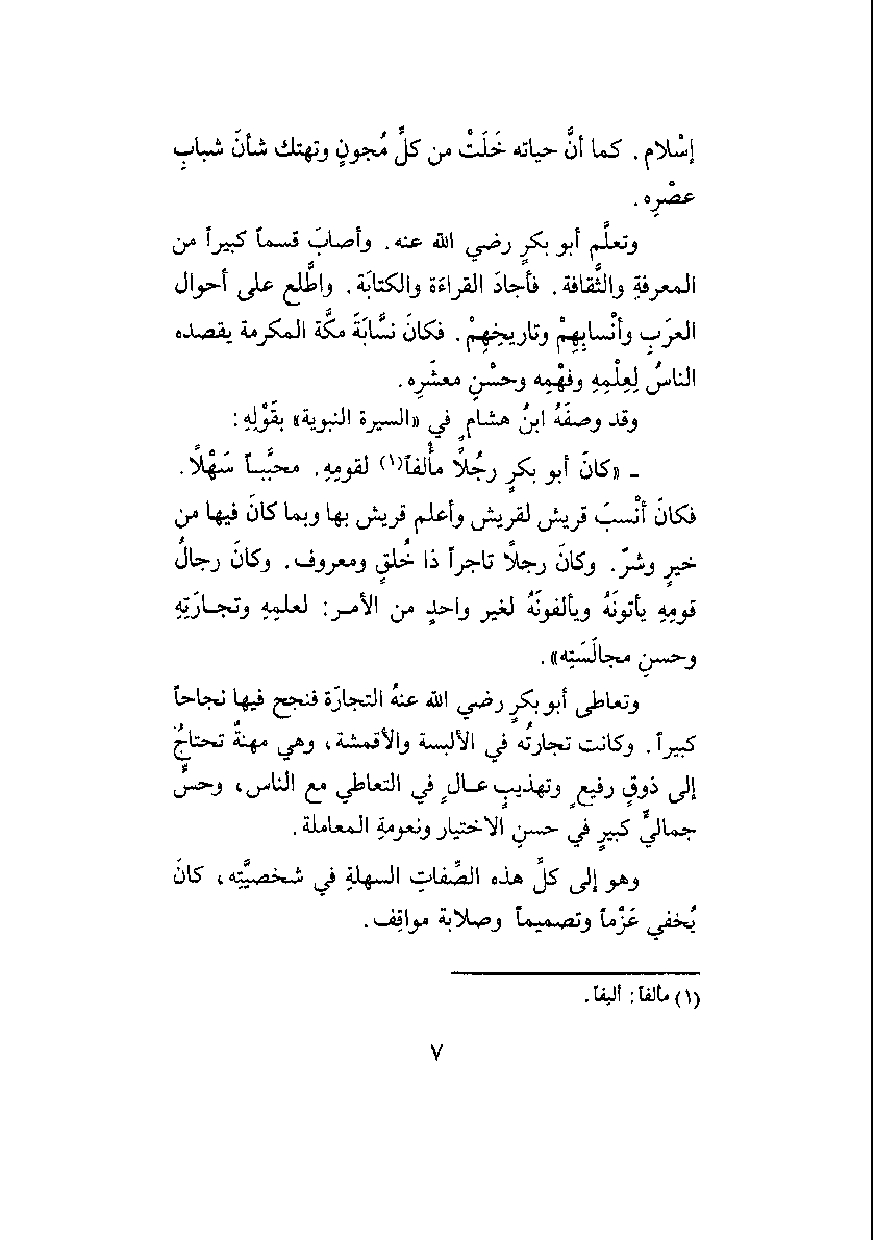 إسْلام . كما أنَّ حياته خَلَتْ من كلِّ مُجونٍ وتهتك شأنَ شبابِ
عصْرِه .
وتعلَّم أبو بكرٍ رضي الله عنه . وأصابَ قسماً كبيراً من
المعرفةِ والثَّقافة . فأجادَ القراءة والكتابَة . واطَّلع على أحوال
العرَبِ وأنْسابِهِمْ وتاريخِهِمْ . فكانَ نسَّابَةَ مكَّة المكرمة يقصده
الناسُ لِعِلْمِهِ وفهْمِه وحسْنِ معشَرِه .
وقد وصفَهُ ابنُ هشام ٍ في «السيرة النبوية» بقَوْلِهِ :
ـ «كانَ أبو بكرٍ رجُلاً مأْلفاً(١) لقومِهِ . محبَّبـاً سَهْلاً .
فكانَ أنْسبُ قريش لقريش وأعلم قريش بها وبما كانَ فيها من
خيرٍ وشرّ . وكانَ رجلاً تاجراً ذا خُلقٍ ومعروف . وكانَ رجالُ
قومِهِ يأتونَهُ ويألفونَهُ لغير واحدٍ من الأمـر : لعلمِهِ وتجـارَتِهِ
وحسنِ مجالَسَتِه» .
وتعاطى أبو بكرٍ رضي الله عنهُ التجارَة فنجح فيها نجاحاً
كبيراً . وكانت تجارتُه في الألبسة والأقمشة ، وهي مهنةٌ تحتاجُ
إلى ذوقٍ رفيع ٍ وتهذيبٍ عـال ٍ في التعاطي مع الناس ، وحسٍّ
جماليٍّ كبيرٍ في حسنِ الاختيار ونعومةِ المعاملة .
وهو إلى كلِّ هذه الصِّفاتِ السهلةِ في شخصيَّتِه ، كانَ
يُخفي عَزْماً وتصميماً وصلابة مواقِف .
(١) مألفاً : أليفاً .
٧